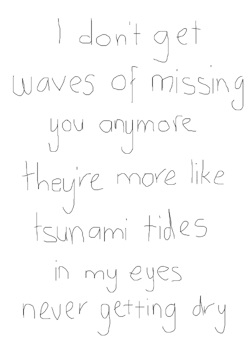 I don't get
waves of missing
you anymore
they're more like
tsunami tides
in my eyes
never getting dry